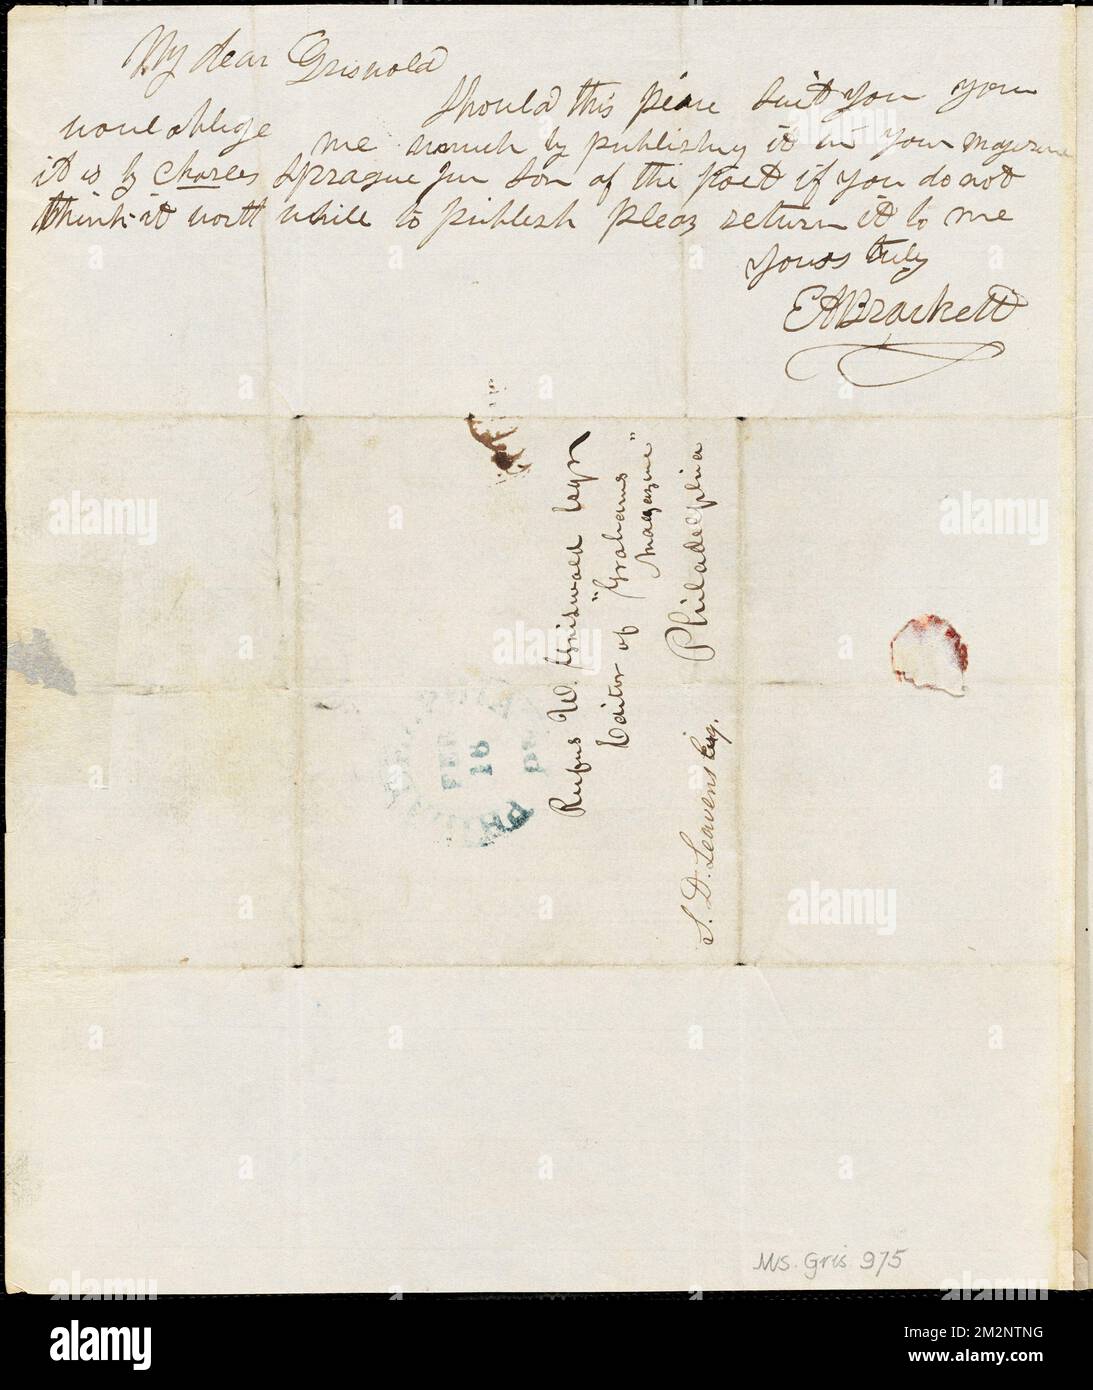 My dear Griswold
Should this piece suit you you
woul oblige me much by publishing it in your magazine
it is by Charles Sprague Jun Son of the Poet if you do not
think it worth while to publish pleas return it to me
Yours truly
E A Brackett
Rufus W. Griswold Esqr
Editor of "Grahams
Magazine"
Philadelphia
S. D. Leavens Esq.
Ms. Gris 975
alamy
Image ID: 2M2NTNG
www.alamy.com